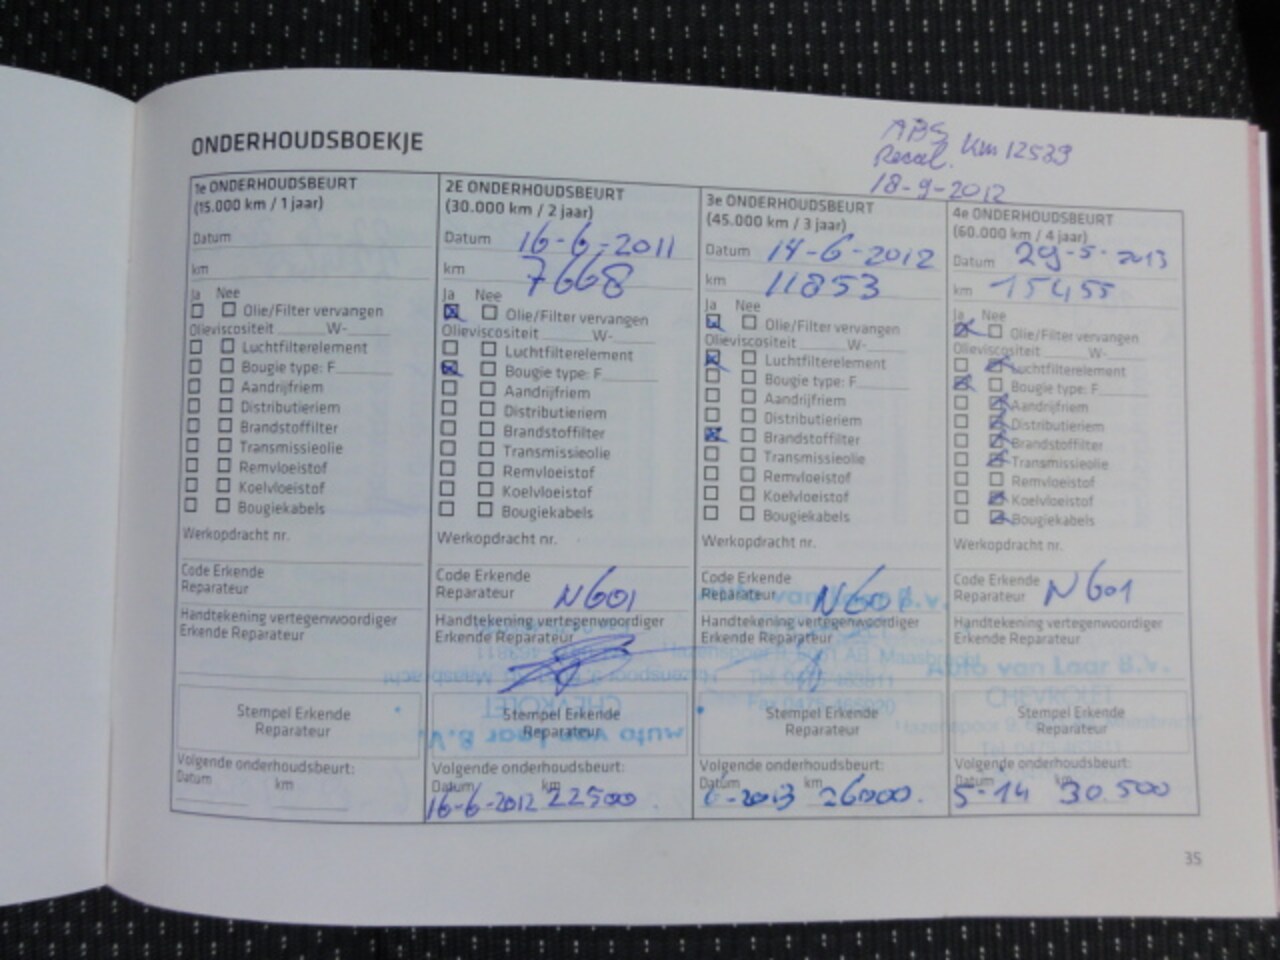 ONDERHOUDSBOEKJE
ABS Km 12539
Recal.
18-9-2012
1e ONDERHOUDSBEURT
(15.000 km / 1 jaar)
Datum
km
Ja Nee
Olie/Filter vervangen
Olieviscositeit ______W-_____
Luchtfilterelement
Bougie type: F_______
Aandrijfriem
Distributieriem
Brandstoffilter
Transmissieolie
Remvloeistof
Koelvloeistof
Bougiekabels
Werkopdracht nr.
Code Erkende
Reparateur
Handtekening vertegenwoordiger
Erkende Reparateur
Stempel Erkende
Reparateur
Volgende onderhoudsbeurt:
Datum km
2E ONDERHOUDSBEURT
(30.000 km / 2 jaar)
Datum 16-6-2011
km 7668
Ja Nee
Olie/Filter vervangen
Olieviscositeit ______W-_____
Luchtfilterelement
Bougie type: F_______
Aandrijfriem
Distributieriem
Brandstoffilter
Transmissieolie
Remvloeistof
Koelvloeistof
Bougiekabels
Werkopdracht nr.
Code Erkende
Reparateur N601
Handtekening vertegenwoordiger
Erkende Reparateur
CHEVROLET
Stempel Erkende
Reparateur
Auto van Laar B.V.
Volgende onderhoudsbeurt:
Datum km
16-6-2012 22500
3e ONDERHOUDSBEURT
(45.000 km / 3 jaar)
Datum 14-6-2012
km 11853
Ja Nee
Olie/Filter vervangen
Olieviscositeit ______W-_____
Luchtfilterelement
Bougie type: F_______
Aandrijfriem
Distributieriem
Brandstoffilter
Transmissieolie
Remvloeistof
Koelvloeistof
Bougiekabels
Werkopdracht nr.
Code Erkende
Auto van Laar B.V.
Reparateur N601
Handtekening vertegenwoordiger
Erkende Reparateur
Stempel Erkende
Reparateur
Volgende onderhoudsbeurt:
Datum
6-2013 26000.
4e ONDERHOUDSBEURT
(60.000 km / 4 jaar)
Datum 29-5-2013
km 15455
Ja Nee
Olie/Filter vervangen
Olieviscositeit ______W-_____
Luchtfilterelement
Bougie type: F_______
Aandrijfriem
Distributieriem
Brandstoffilter
Transmissieolie
Remvloeistof
Koelvloeistof
Bougiekabels
Werkopdracht nr.
Code Erkende
Reparateur N601
Handtekening vertegenwoordiger
Erkende Reparateur
Auto van Laar B.V.
CHEVROLET
Stempel Erkende
Reparateur
Volgende onderhoudsbeurt:
Datum km
5-14 30.500
35